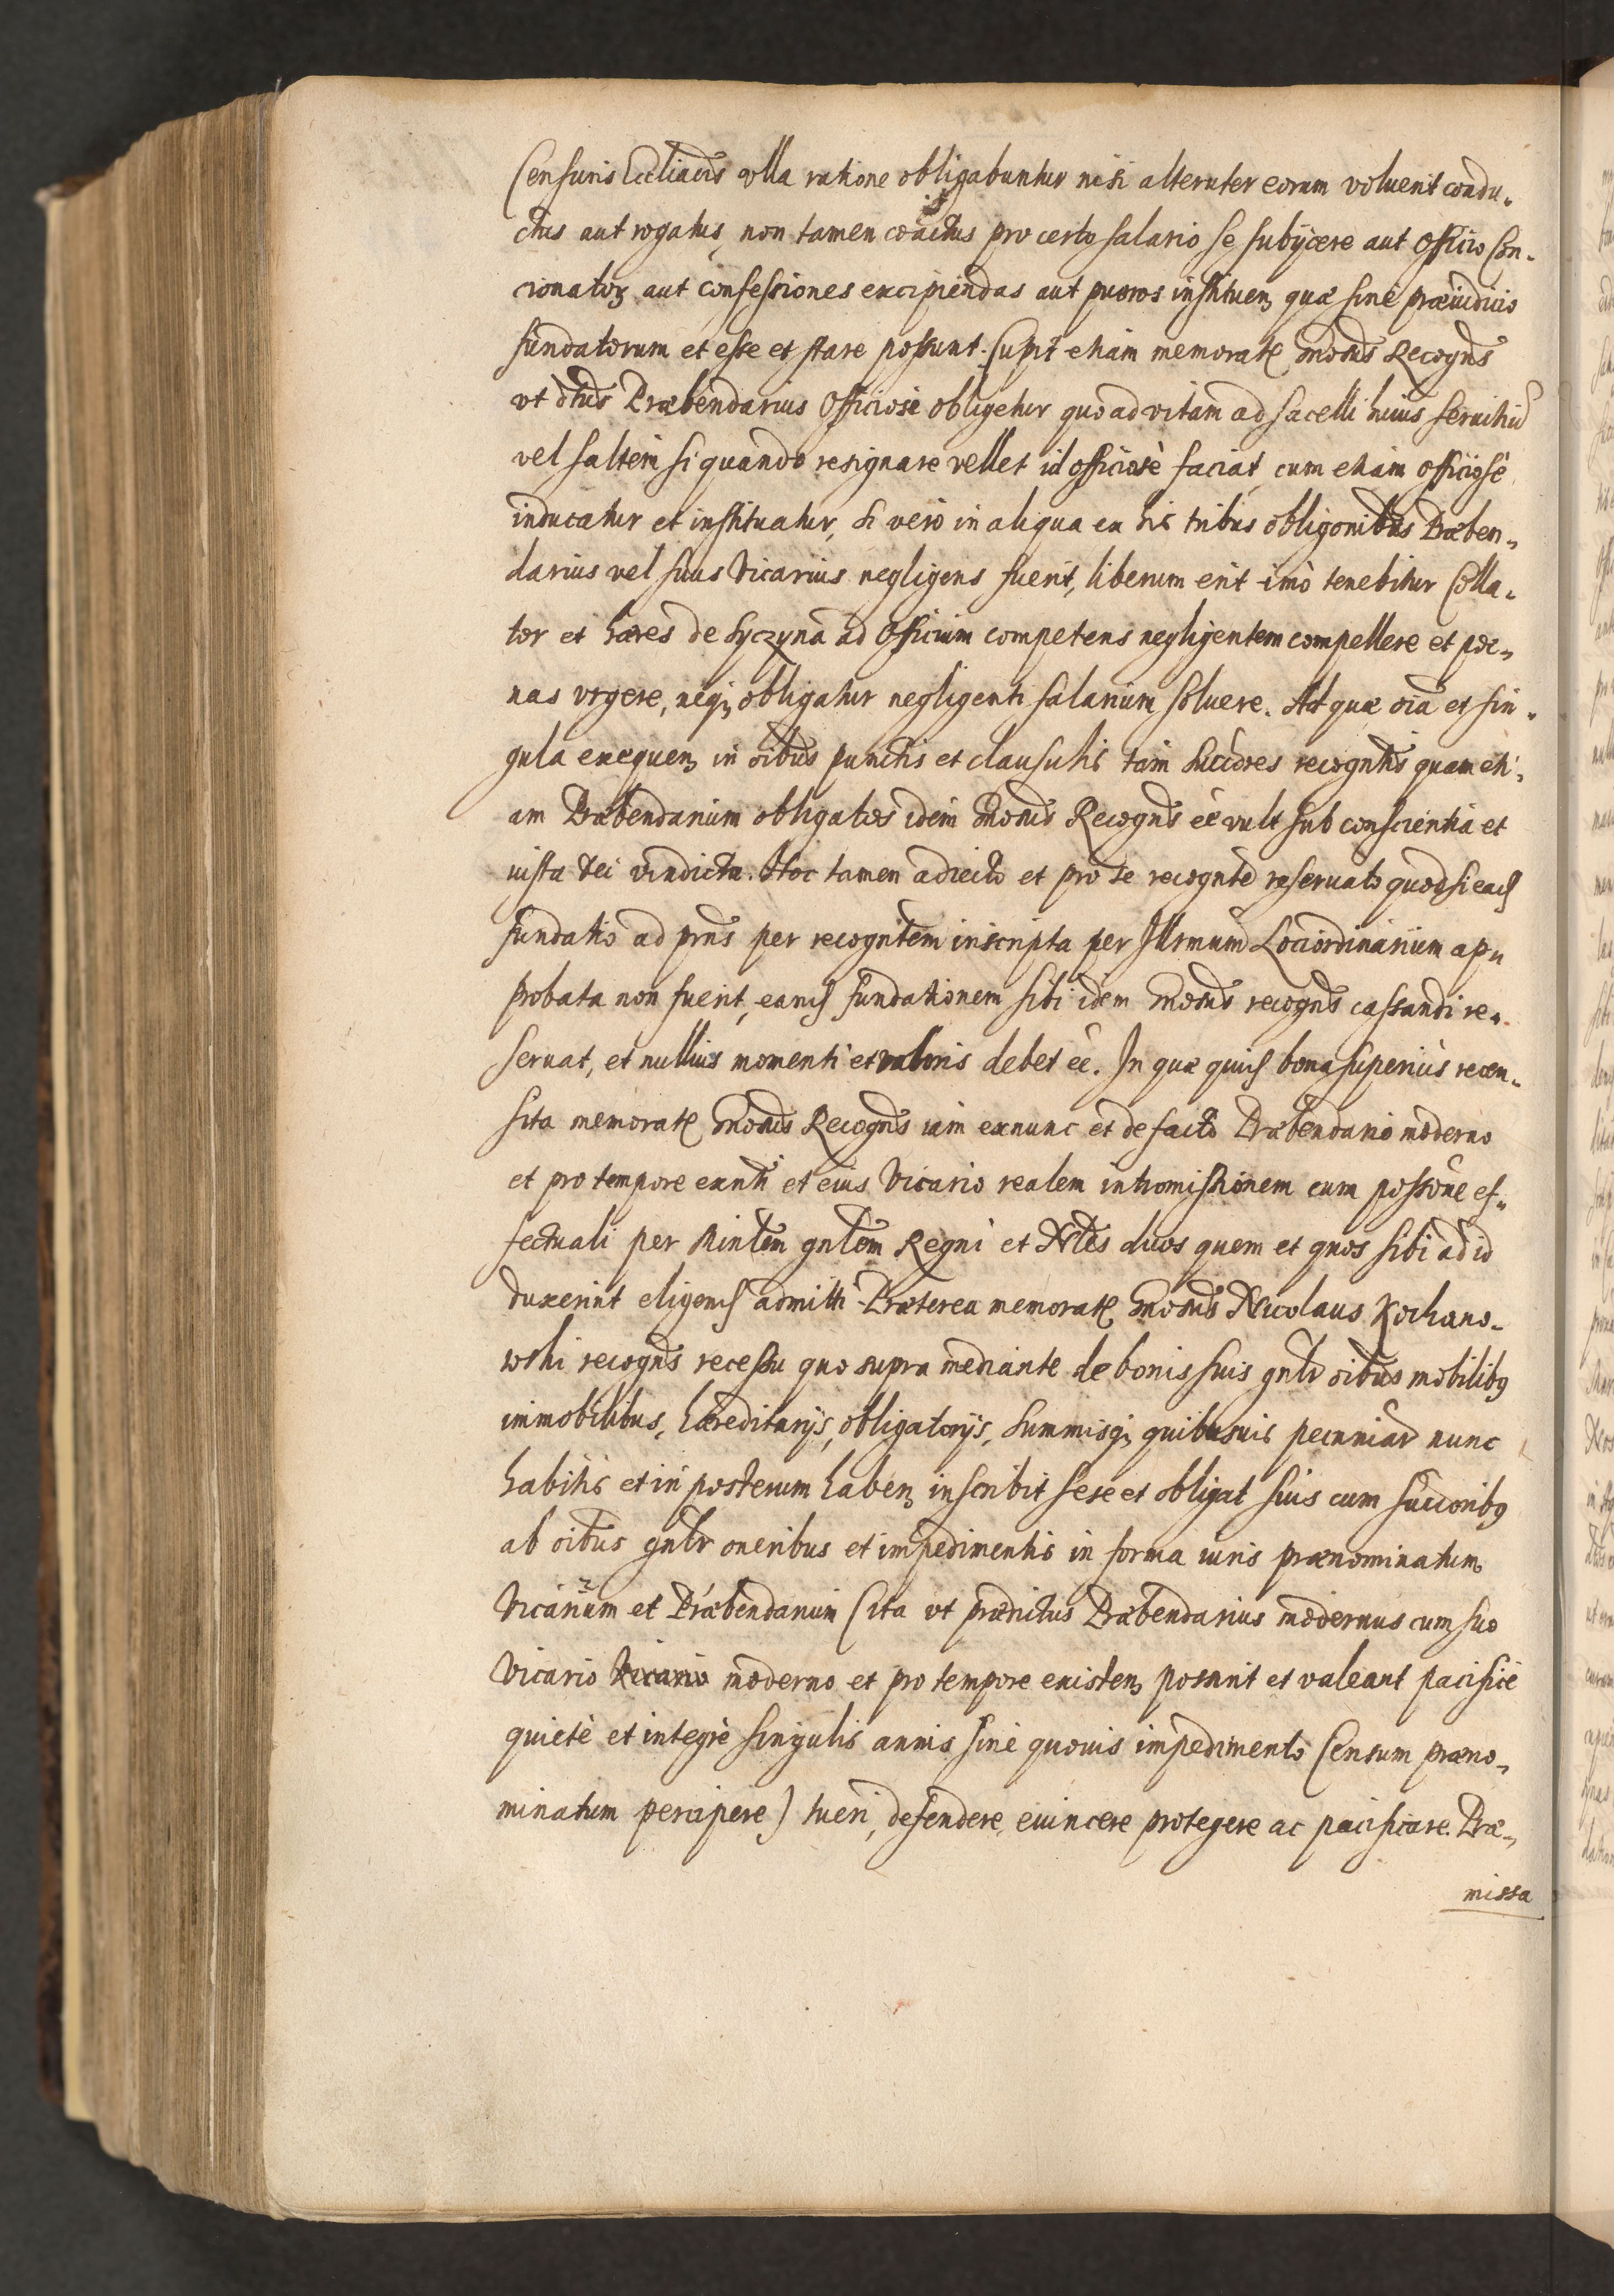 Censuris Eccliacis vlla ratione obligabuntur nisi alteruter eorum voluerit condu-
ctus aut rogatus, non tamen coactus pro certo salario se subijcere aut Officio Con-
cionatorꝫ aut confessiones excipiendas aut pueros instituenꝫ quæ sine præiudicio
fundatorum et esse et stare possunt. Cupit etiam memoratꝫ Gnosus Recogns
vt dtus Præbendarius Officiose obligetur quo ad vitam ad sacelli huius seruitiũ
vel saltem si quando resignare vellet id officiosè faciat, cum etiam officiosè
inducatur et instituatur, si verò in aliqua ex his tribus obligonibus Præben-
darius vel suus Vicarius negligens fuerit, liberum erit imò tenebitur Colla-
tor et hæres de Syczyna ad Officium competens negligentem compellere et pœ-
nas vrgere, neqꝫ obligatur negligenti salarium soluere. Ad quæ oia et sin-
gula exequenꝫ in oibus punctis et clausulis tam succores recogntis quam eti-
am Præbendarium obligatos idem Gnosus Recogns eè vult sub conscientia et
iusta Dei vindicta. Hoc tamen adiecto et pro se recognte reseruato quod si eadꝫ
fundatio ad prns per recogntem inscripta per Illrmum Lociordinarium ap-
probata non fuerit, eandꝫ fundationem sibi idem Gnosus recogns cassandi re-
seruat, et nullius momenti et valoris debet eè. In quæ quidꝫ bona superius recen-
sita memoratꝫ Gnosus Recogns iam exnunc et de facto Præbendario moderno
et pro tempore exnti et eius Vicario realem intromissionem cum possone ef-
fectuali per Mintlem gnlem Regni et Nles duos quem et quos sibi ad id
duxerint eligendꝫ admitti. Præterea memoratꝫ Gnosus Nicolaus Kochano-
wski recogns recessu quo supra mediante de bonis suis gnlr oibus mobilibꝰ
immobilibus, hæreditarijs, obligatorijs, summisqꝫ quibusuis pecuniar nunc
habitis et in posterum habenꝫ inscribit sese et obligat suis cum succoribꝰ
ab oibus gnlr oneribus et impedimentis in forma iuris prænominatum
Vicarium et Præbendarium (ita vt prædictus Præbendarius modernus cum suo
Vicario Vicario moderno et pro tempore existenꝫ possint et valeant pacificè
quietè et integrè singulis annis sine quouis impedimento Censum præno-
minatum percipere) tueri, defendere, euincere protegere ac pacificare. Præ-
missa